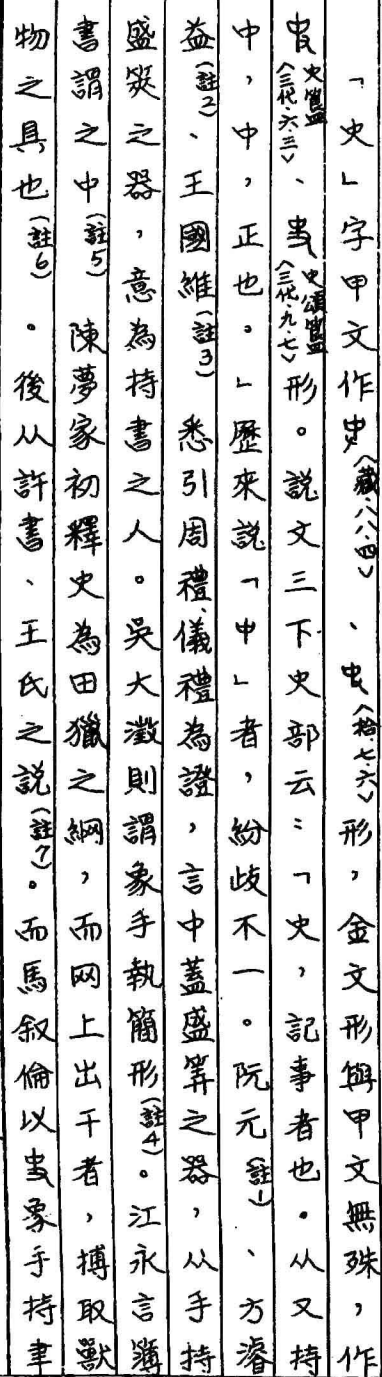 「史」字甲文作𠭁〈藏·八八·四〉、𠭁〈拾·七·六〉形，金文形與甲文無殊，作
史簋〈三代·六·三〉、史頌簋〈三代·九·七〉形。說文三下史部云：「史，記事者也。从又持
中，中，正也。」歷來說「中」者，紛歧不一。阮元(註1)、方濬
益(註2)、王國維(註3)悉引周禮、儀禮為證，言中蓋盛筭之器，从手持
盛筴之器，意為持書之人。吳大澂則謂象手執簡形(註4)。江永言簿
書謂之中(註5)陳夢家初釋史為田獵之網，而网上出干者，搏取獸
物之具也(註6)。後从許書、王氏之說(註7)。而馬叙倫以象手持聿